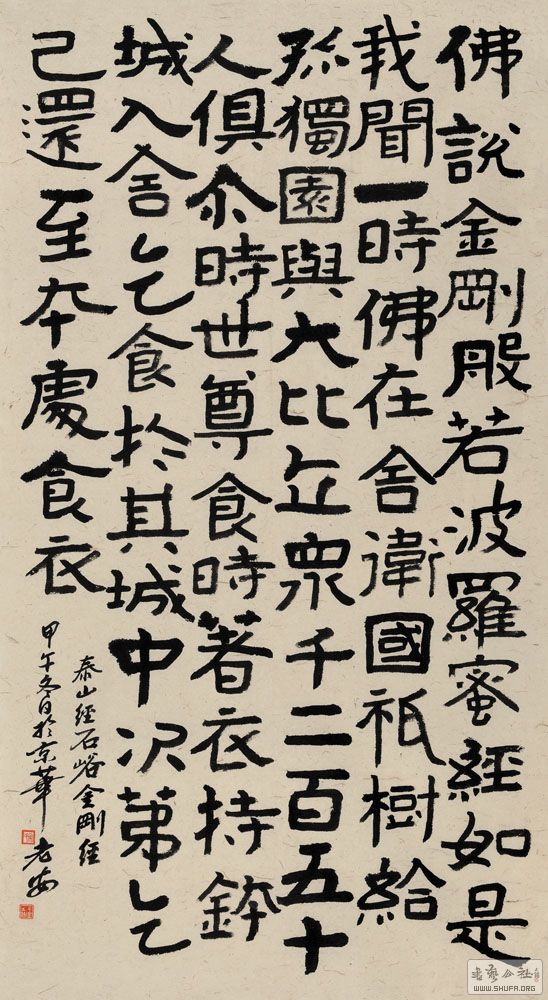 佛說金剛般若波羅蜜經如是
我聞一時佛在舍衛國祇樹給
孤獨園與大比丘眾千二百五十
人俱尒時世尊食時著衣持鉢
城入舍乞食於其城中次第乞
已還至本處食衣
泰山經石峪金剛經
甲午冬日於京華 老安
WWW.SHUFA.ORG